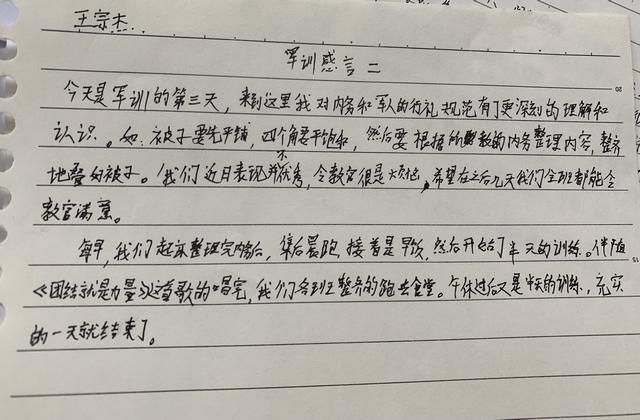 王宗杰
军训感言二
今天是军训的第三天，来到这里我对内务和军人的行礼规范有了更深刻的理解和
认识。如：被子要先平铺，四个角要平饱和，然后要根据所教的内务整理内容，整齐
地叠好被子。我们近日表现并不优秀，令教官很是烦恼，希望在之后几天我们全班都能令
教官满意。
每早，我们起床整理完内务后，集合晨跑，接着是早饭，然后开始了半天的训练。伴随
《团结就是力量》这首歌的唱完，我们各班整齐的跑去食堂。午休过后又是半天的训练，充实
的一天就结束了。